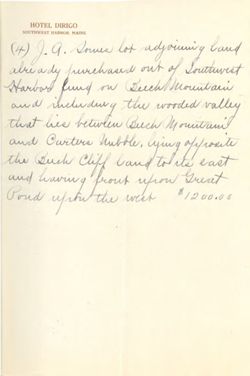 HOTEL DIRIGO
SOUTHWEST HARBOR, MAINE
(4) J. A. Somes lot adjoining land
already purchased out of Southwest
Harbor fund on Beech Mountain
and including the wooded valley
that lies between Beech Mountain
and Carters Nubble, lying opposite
the Beech Cliff land to its east
and having front upon Great
Pond upon the west $1200.00